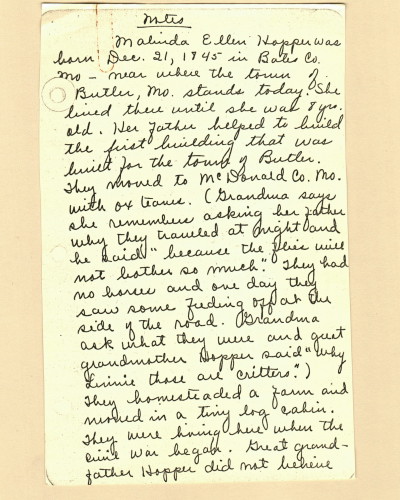 Notes
Malinda Ellen Hopper was
born Dec. 21, 1845 in Bates Co.
Mo - near where the town of
Butler, Mo. stands today. She
lived there until she was 8 yrs.
old. Her father helped to build
the first building that was
built for the town of Butler.
They moved to McDonald Co. Mo.
with ox teams. (Grandma says
she remembers asking her father
why they traveled at night and
he said "because the flies will
not bother so much". They had
no horses and one day they
saw some feeding off at the
side of the road. Grandma
ask what they were and
grandmother Hopper said "why
Linnie those are critters".)
They homesteaded a farm and
moved in a tiny log cabin.
They were living here when the
civil war began. Great grand-
father Hopper did not believe